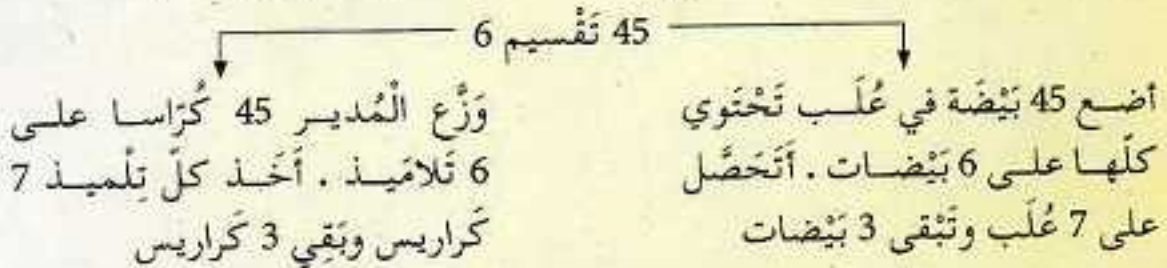 45 تَقْسيم 6
أضع 45 بَيْضَة في عُلَب تَحْتَوي
كلّها على 6 بَيْضات . أتَحَصَّل
على 7 عُلَب وتَبْقى 3 بَيْضات
وَزَّع الْمُدير 45 كُرّاسا على
6 تَلامَيذ . أَخَذ كلّ تِلْميذ 7
كَراريس وبَقِي 3 كَراريس